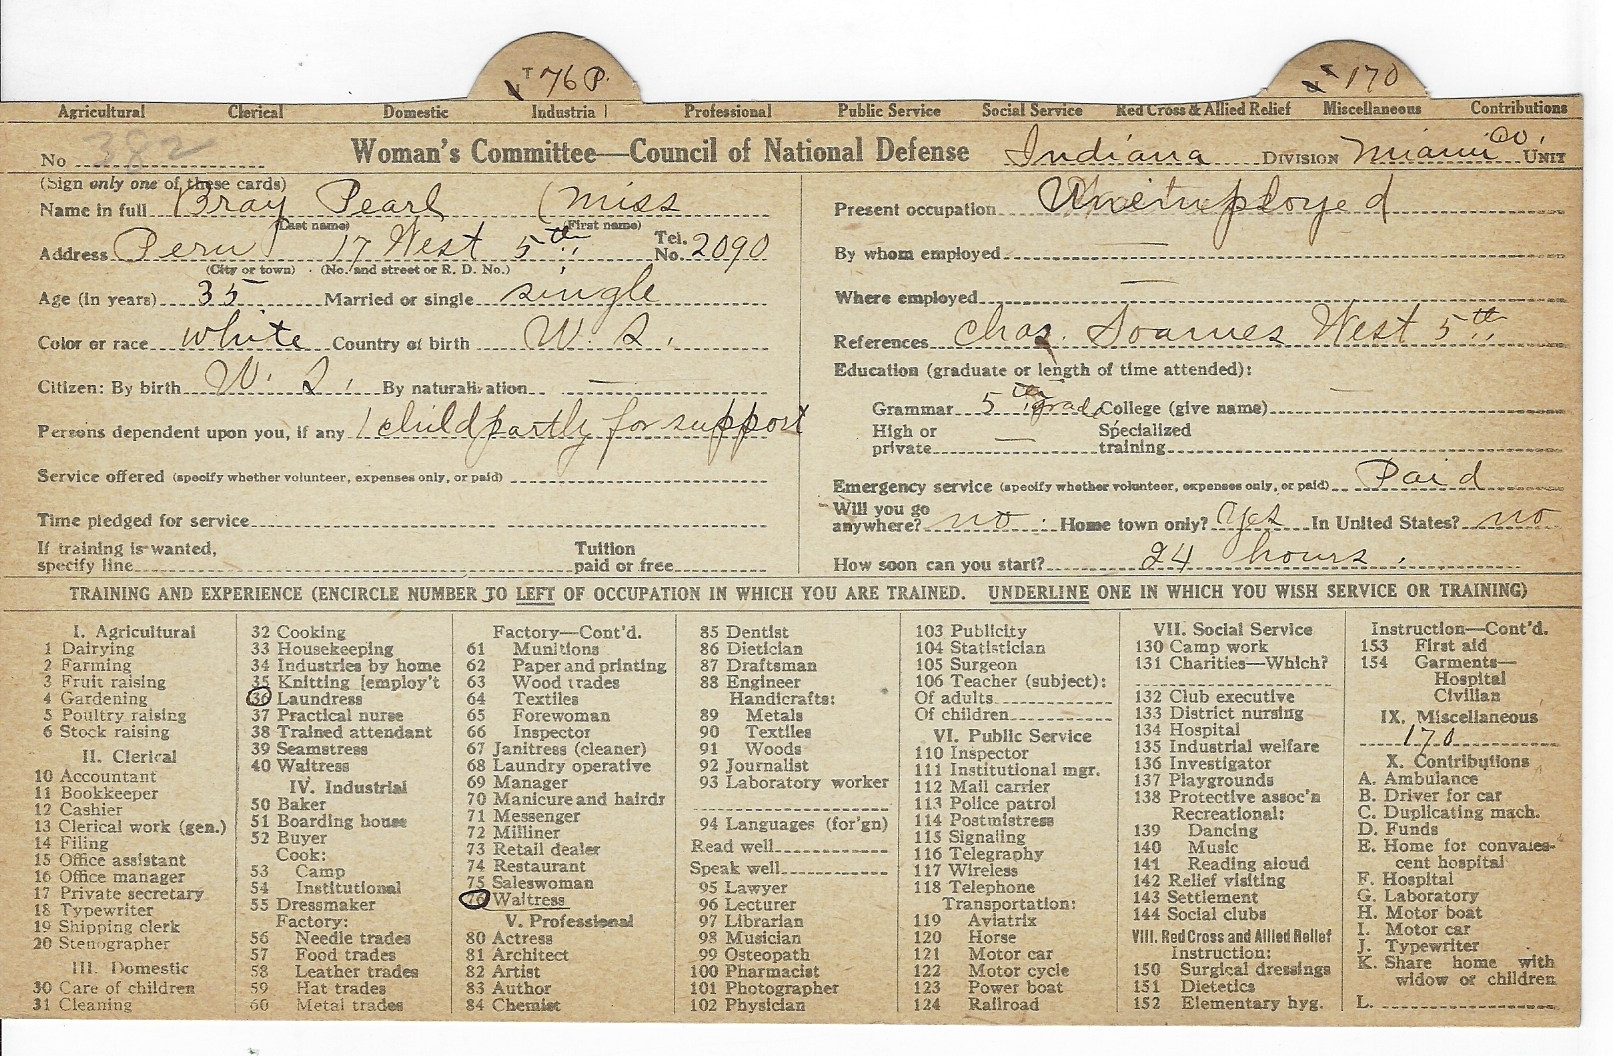 T 76 P.
T 170
Agricultural Clerical Domestic Industrial Professional Public Service Social Service Red Cross & Allied Relief Miscellaneous Contributions
No 382 Woman's Committee—Council of National Defense Indiana DIVISION Miami Co. UNIT
(Sign only one of these cards)
Name in full Bray Pearl (Miss
(Last name) (First name)
Address Peru 17 West 5th Tel. No. 2090
(City or town) (No. and street or R. D. No.)
Age (in years) 35 Married or single single
Color or race white Country of birth U. S.
Citizen: By birth U. S. By naturalization —
Persons dependent upon you, if any 1 child partly for support
Service offered (specify whether volunteer, expenses only, or paid)
Time pledged for service
If training is wanted, specify line Tuition paid or free
Present occupation Unemployed
By whom employed —
Where employed —
References Chas. Soames West 5th
Education (graduate or length of time attended):
Grammar 5th grade College (give name) —
High or private — Specialized training
Emergency service (specify whether volunteer, expenses only, or paid) Paid
Will you go anywhere? no. Home town only? Yes In United States? no
How soon can you start? 24 hours.
TRAINING AND EXPERIENCE (ENCIRCLE NUMBER TO LEFT OF OCCUPATION IN WHICH YOU ARE TRAINED. UNDERLINE ONE IN WHICH YOU WISH SERVICE OR TRAINING)
I. Agricultural
1 Dairying
2 Farming
3 Fruit raising
4 Gardening
5 Poultry raising
6 Stock raising
II. Clerical
10 Accountant
11 Bookkeeper
12 Cashier
13 Clerical work (gen.)
14 Filing
15 Office assistant
16 Office manager
17 Private secretary
18 Typewriter
19 Shipping clerk
20 Stenographer
III. Domestic
30 Care of children
31 Cleaning
32 Cooking
33 Housekeeping
34 Industries by home
35 Knitting [employ't
36 Laundress
37 Practical nurse
38 Trained attendant
39 Seamstress
40 Waitress
IV. Industrial
50 Baker
51 Boarding house
52 Buyer
Cook:
53 Camp
54 Institutional
55 Dressmaker
Factory:
56 Needle trades
57 Food trades
58 Leather trades
59 Hat trades
60 Metal trades
Factory—Cont'd.
61 Munitions
62 Paper and printing
63 Wood trades
64 Textiles
65 Forewoman
66 Inspector
67 Janitress (cleaner)
68 Laundry operative
69 Manager
70 Manicure and hairdr
71 Messenger
72 Milliner
73 Retail dealer
74 Restaurant
75 Saleswoman
76 Waitress
V. Professional
80 Actress
81 Architect
82 Artist
83 Author
84 Chemist
85 Dentist
86 Dietician
87 Draftsman
88 Engineer
Handicrafts:
89 Metals
90 Textiles
91 Woods
92 Journalist
93 Laboratory worker
94 Languages (for'gn)
Read well
Speak well
95 Lawyer
96 Lecturer
97 Librarian
98 Musician
99 Osteopath
100 Pharmacist
101 Photographer
102 Physician
103 Publicity
104 Statistician
105 Surgeon
106 Teacher (subject):
Of adults
Of children
VI. Public Service
110 Inspector
111 Institutional mgr.
112 Mail carrier
113 Police patrol
114 Postmistress
115 Signaling
116 Telegraphy
117 Wireless
118 Telephone
Transportation:
119 Aviatrix
120 Horse
121 Motor car
122 Motor cycle
123 Power boat
124 Railroad
VII. Social Service
130 Camp work
131 Charities—Which?
132 Club executive
133 District nursing
134 Hospital
135 Industrial welfare
136 Investigator
137 Playgrounds
138 Protective assoc'n
Recreational:
139 Dancing
140 Music
141 Reading aloud
142 Relief visiting
143 Settlement
144 Social clubs
VIII. Red Cross and Allied Relief
Instruction:
150 Surgical dressings
151 Dietetics
152 Elementary hyg.
Instruction—Cont'd.
153 First aid
154 Garments—
Hospital
Civilian
IX. Miscellaneous
170
X. Contributions
A. Ambulance
B. Driver for car
C. Duplicating mach.
D. Funds
E. Home for convales-
cent hospital
F. Hospital
G. Laboratory
H. Motor boat
I. Motor car
J. Typewriter
K. Share home with
widow or children
L.